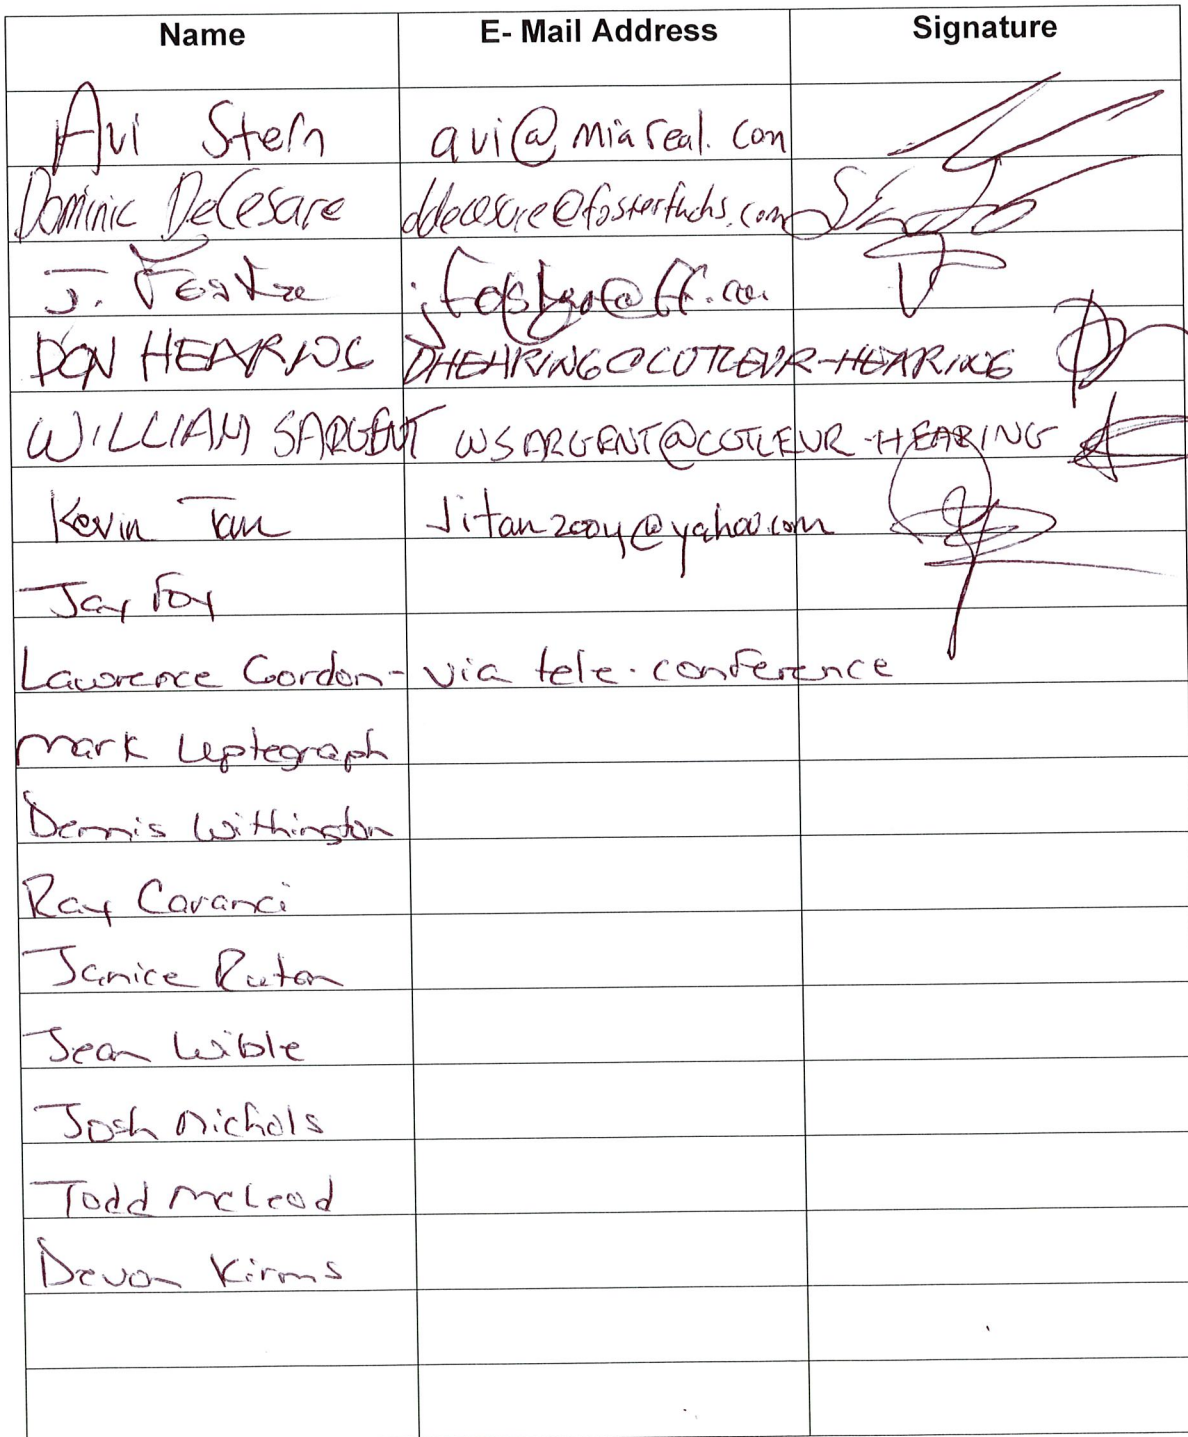 Name E- Mail Address Signature
Avi Stern avi@miareal.com
Dominic DeCesare ddecesare@fosterfuchs.com
J.
DON HEARING DHEARING@COTLEUR-HEARING
WILLIAM SARGENT WSARGENT@COTLEUR-HEARING
Kevin Tan Jitan2004@yahoo.com
Jay Foy
Lawrence Gordon- via tele-conference
Mark Leptegraph
Dennis Withington
Ray Caranci
Janice Rutan
Jean Wible
Josh Nichols
Todd McLeod
Devon Kirms